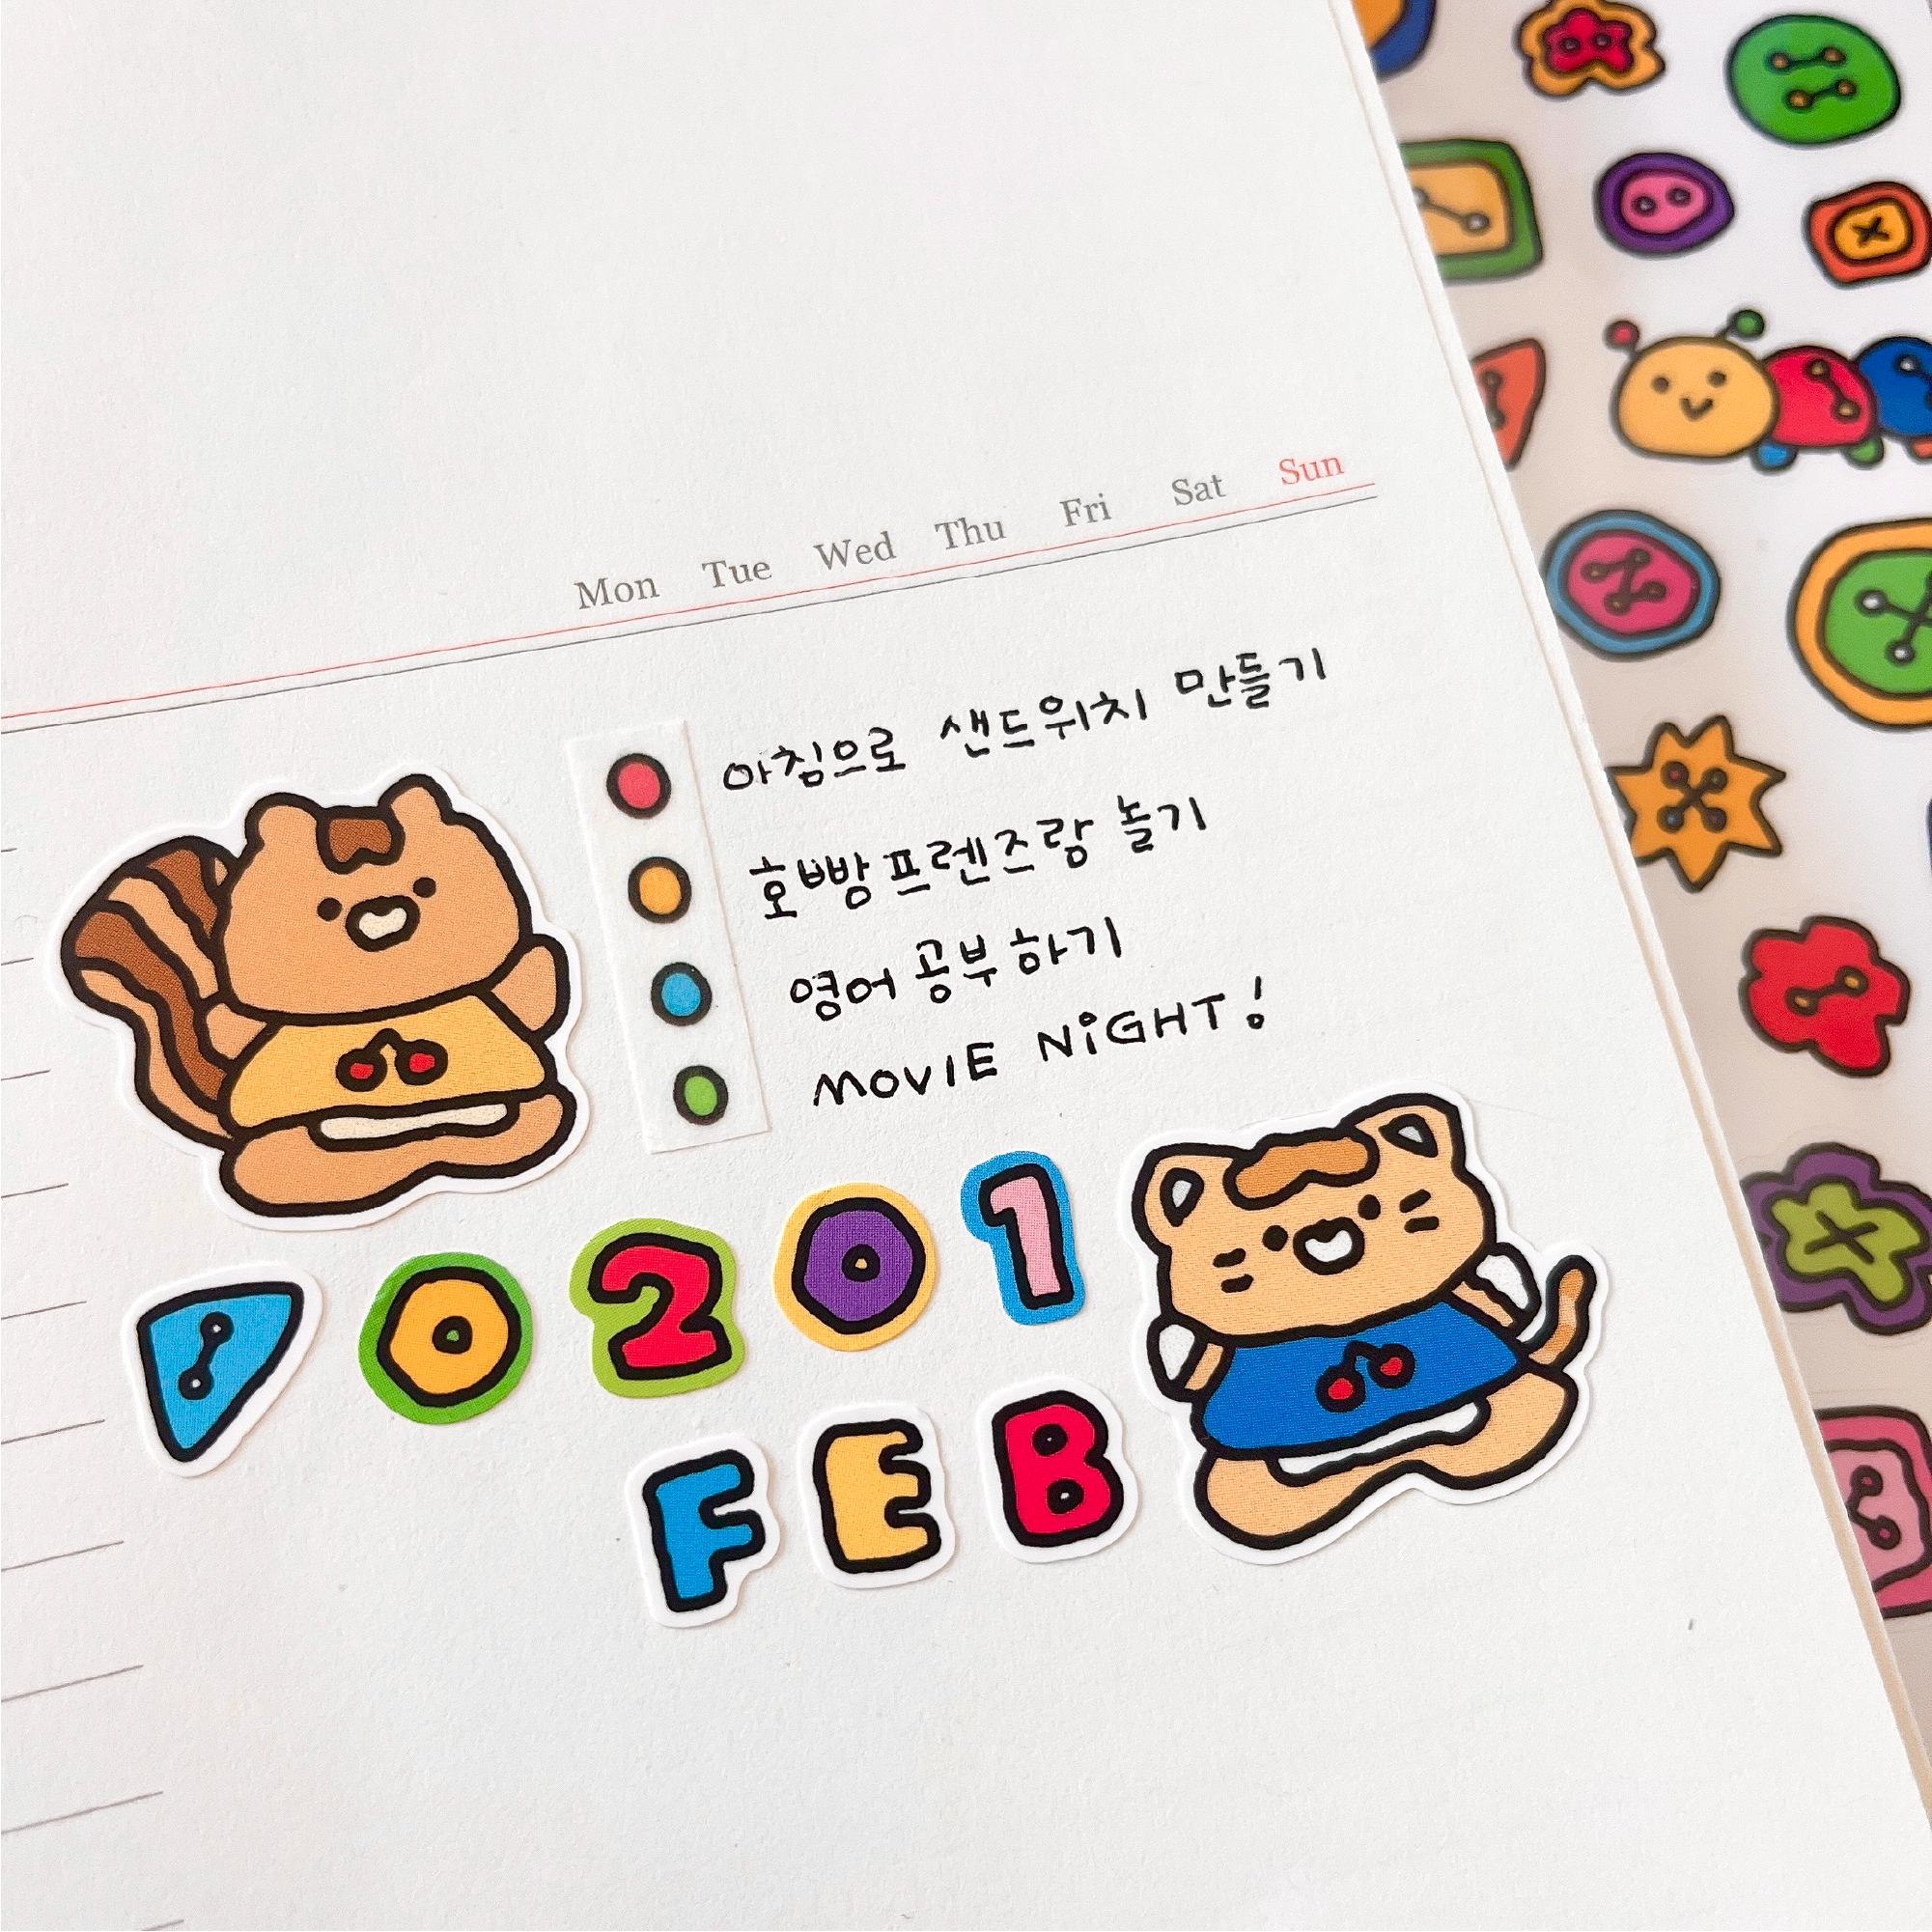 Mon Tue Wed Thu Fri Sat Sun
아침으로 샌드위치 만들기
호빵프렌즈랑 놀기
영어 공부하기
MOViE NiGHT!
0201
FEB